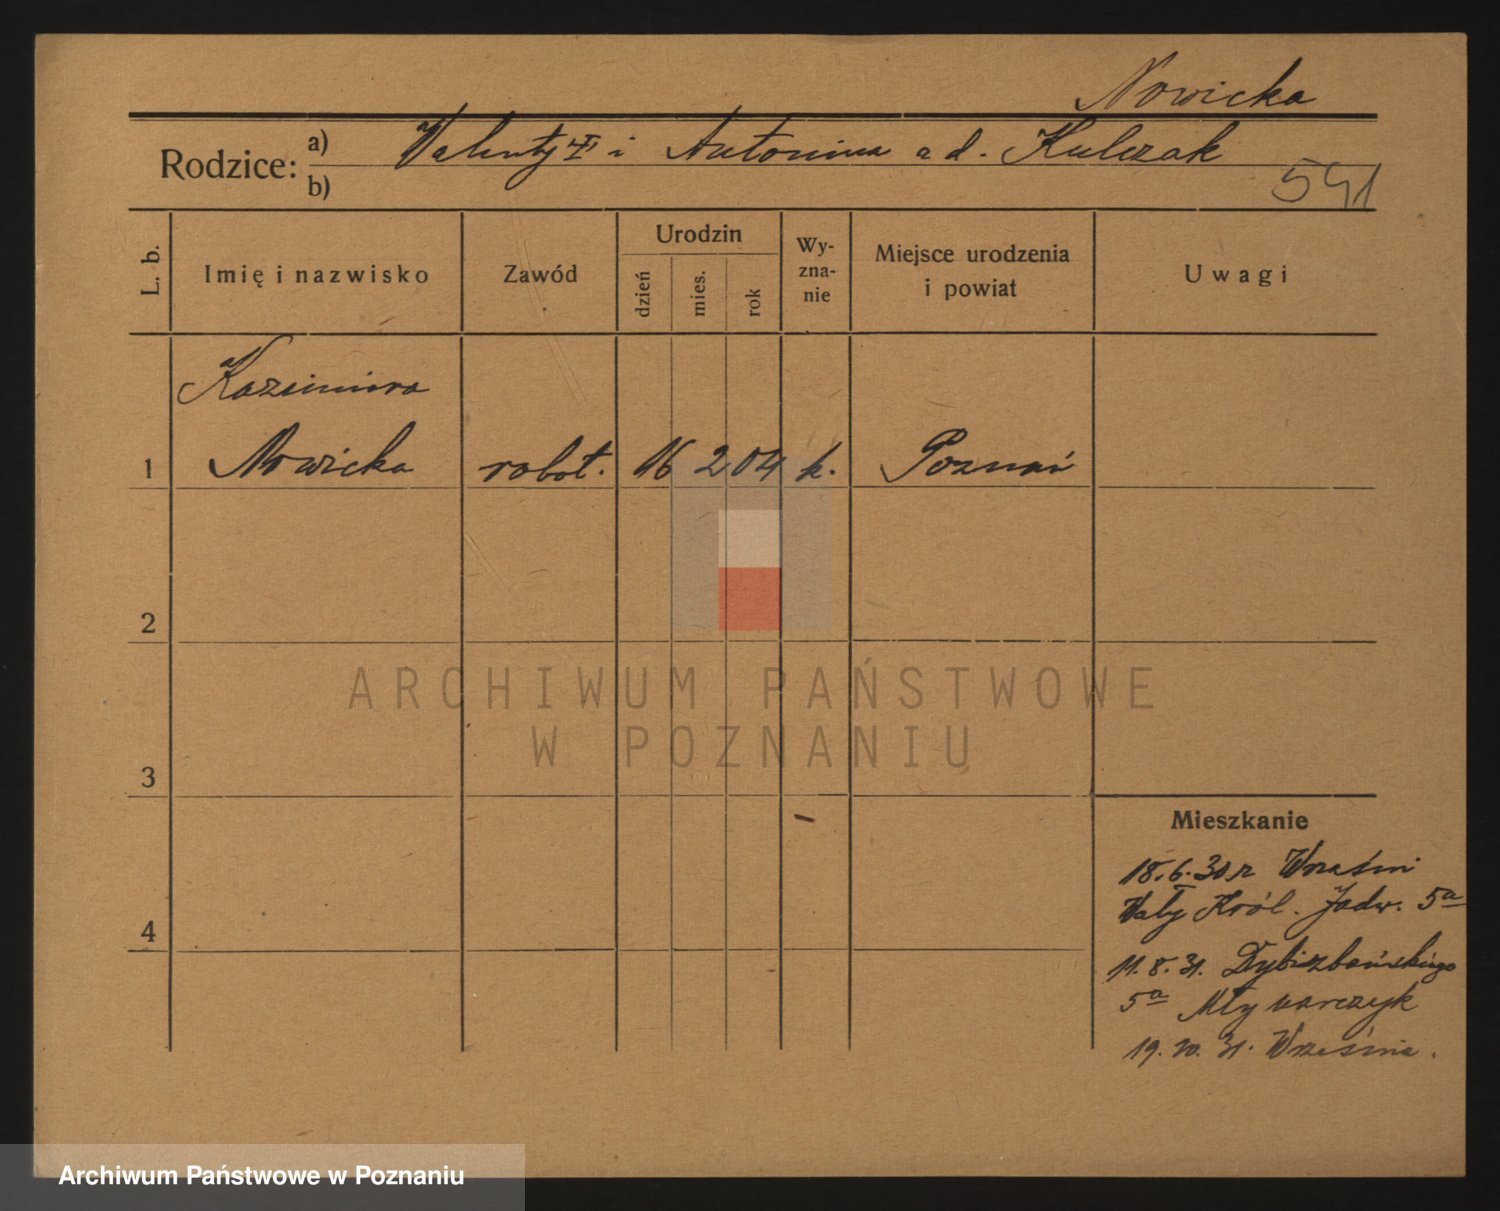 Nowicka
Rodzice: a) Walenty i Antonina a d. Kulczak
b)
541
L. b.
Imię i nazwisko
Zawód
Urodzin
dzień
mies.
rok
Wy-
zna-
nie
Miejsce urodzenia
i powiat
Uwagi
Kazimiera
1 Nowicka robot. 16 2 04 k. Poznań
2
3
4
ARCHIWUM PAŃSTWOWE
W POZNANIU
Mieszkanie
18.6.30 r Wrześni
Wały Król. Jadw. 5a
11.8.31. Dybizbańskiego
5a Młynarczyk
19.10.31. Września.
Archiwum Państwowe w Poznaniu